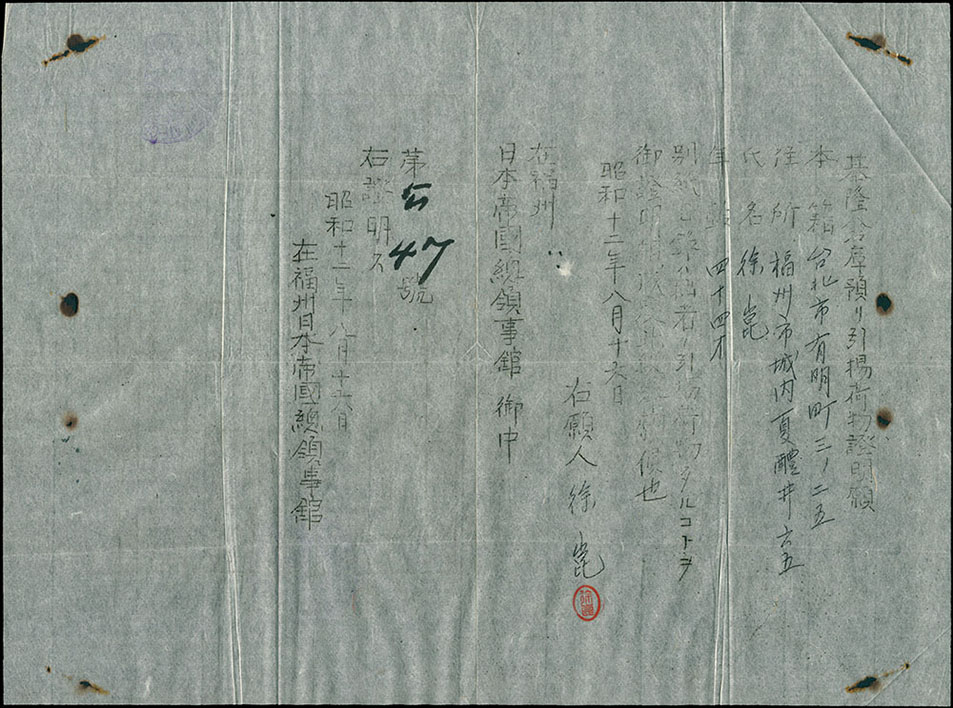 基隆倉庫預リ引揚荷物證明願
本籍 台北市有明町三ノ二五
住所 福州市城内夏醴井六五
氏名 徐崑
年齢 四十四才
別紙 引揚荷物タルコトヲ
御證明 候也
昭和十二年八月十六日
右願人 徐崑
在福州
日本帝國總領事館 御中
第 47 號
右證明ス
昭和十二年八月十六日
在福州日本帝國總領事館